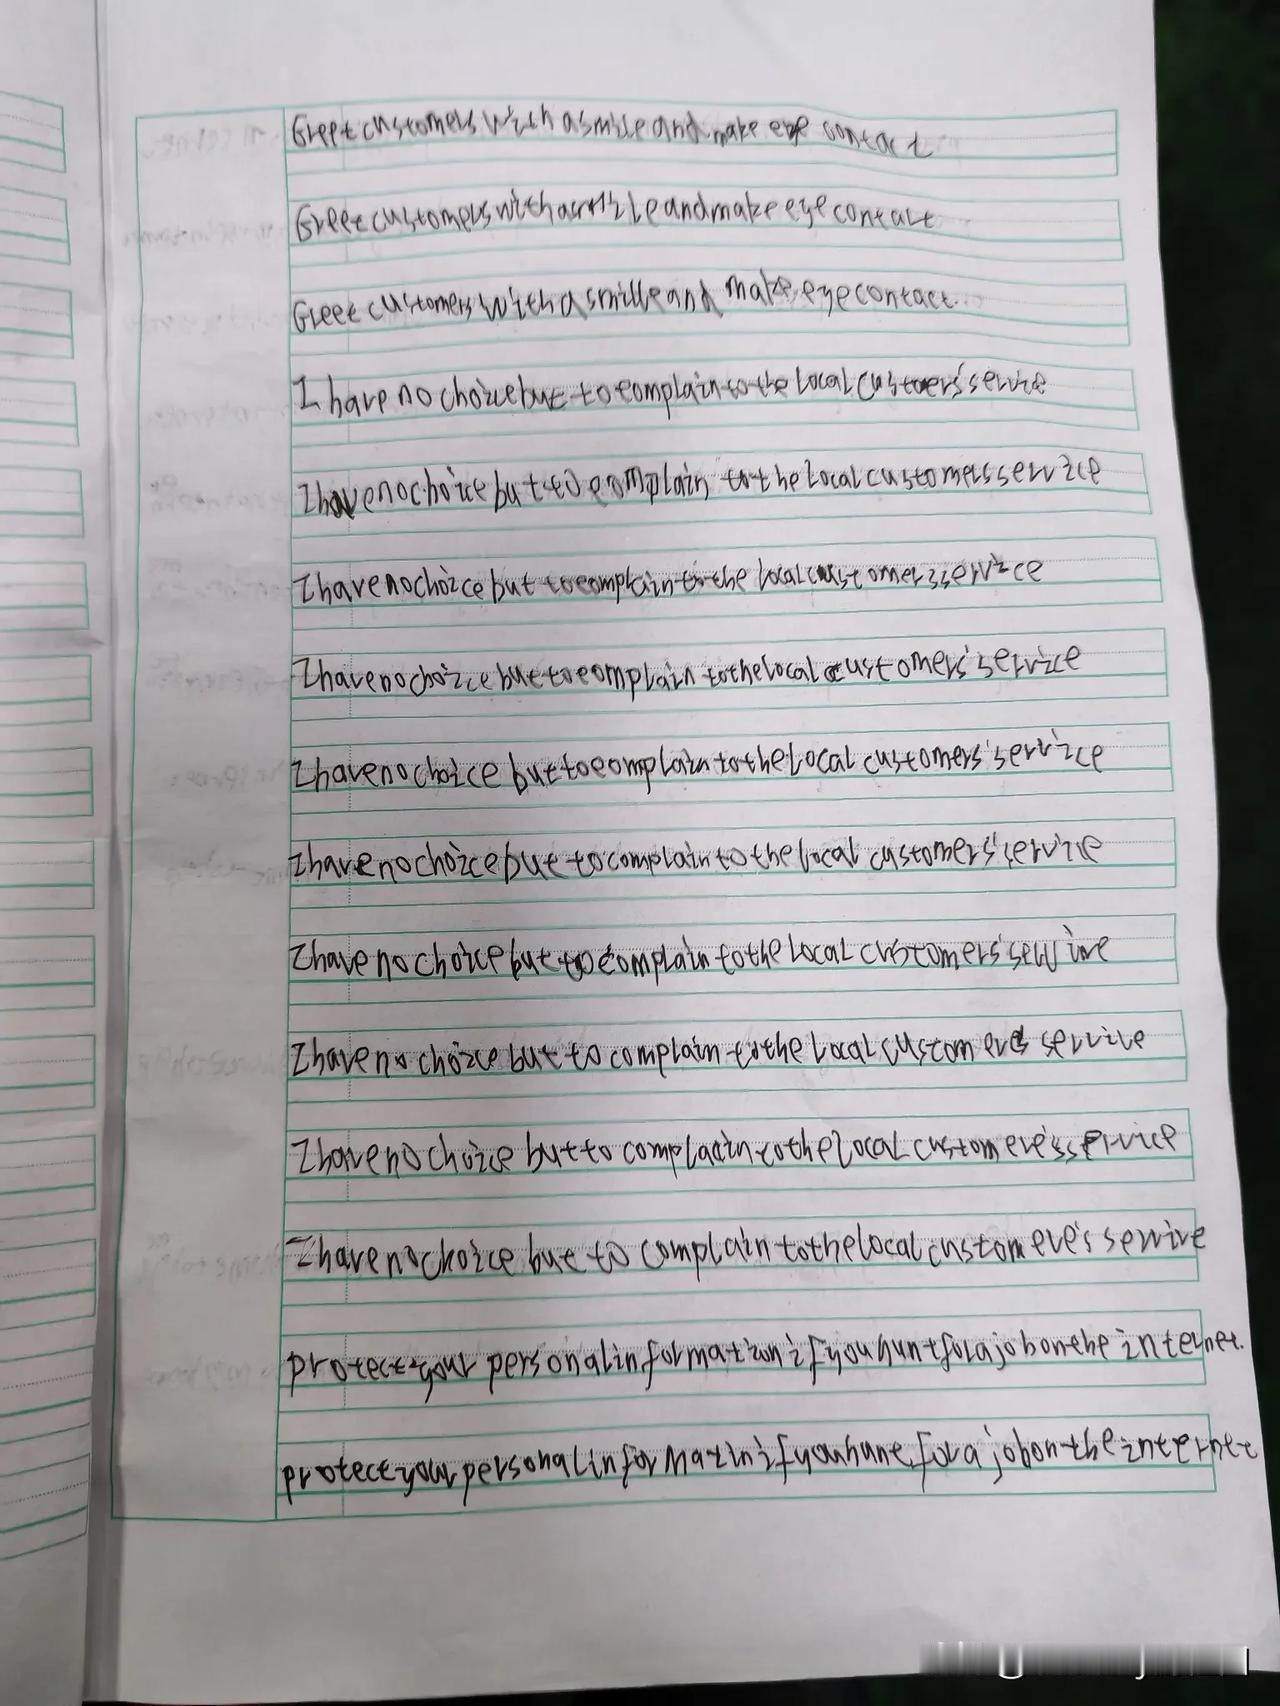 Greet customers with a smile and make eye contact
Greet customers with a smile and make eye contact
Greet customers with a smille and make eye contact.
I have no choice but to complain to the local custoers' service
I have no choice but to complain to the local customers service
I have no choice but to complain to the local customers service
I have no choice but to complain to the local customers' service
I have no choice but to complain to the local customers' service
I have no choice but to complain to the local customers' service
I have no choice but to complain to the local customers' service
I have no choice but to complain to the local customer service
I have no choice but to complain to the local customere's service
I have no choice but to complain to the local customere's service
protect your personal information if you hunt for a job on the internet.
protect your personal informatin if you hunt for a job on the internet